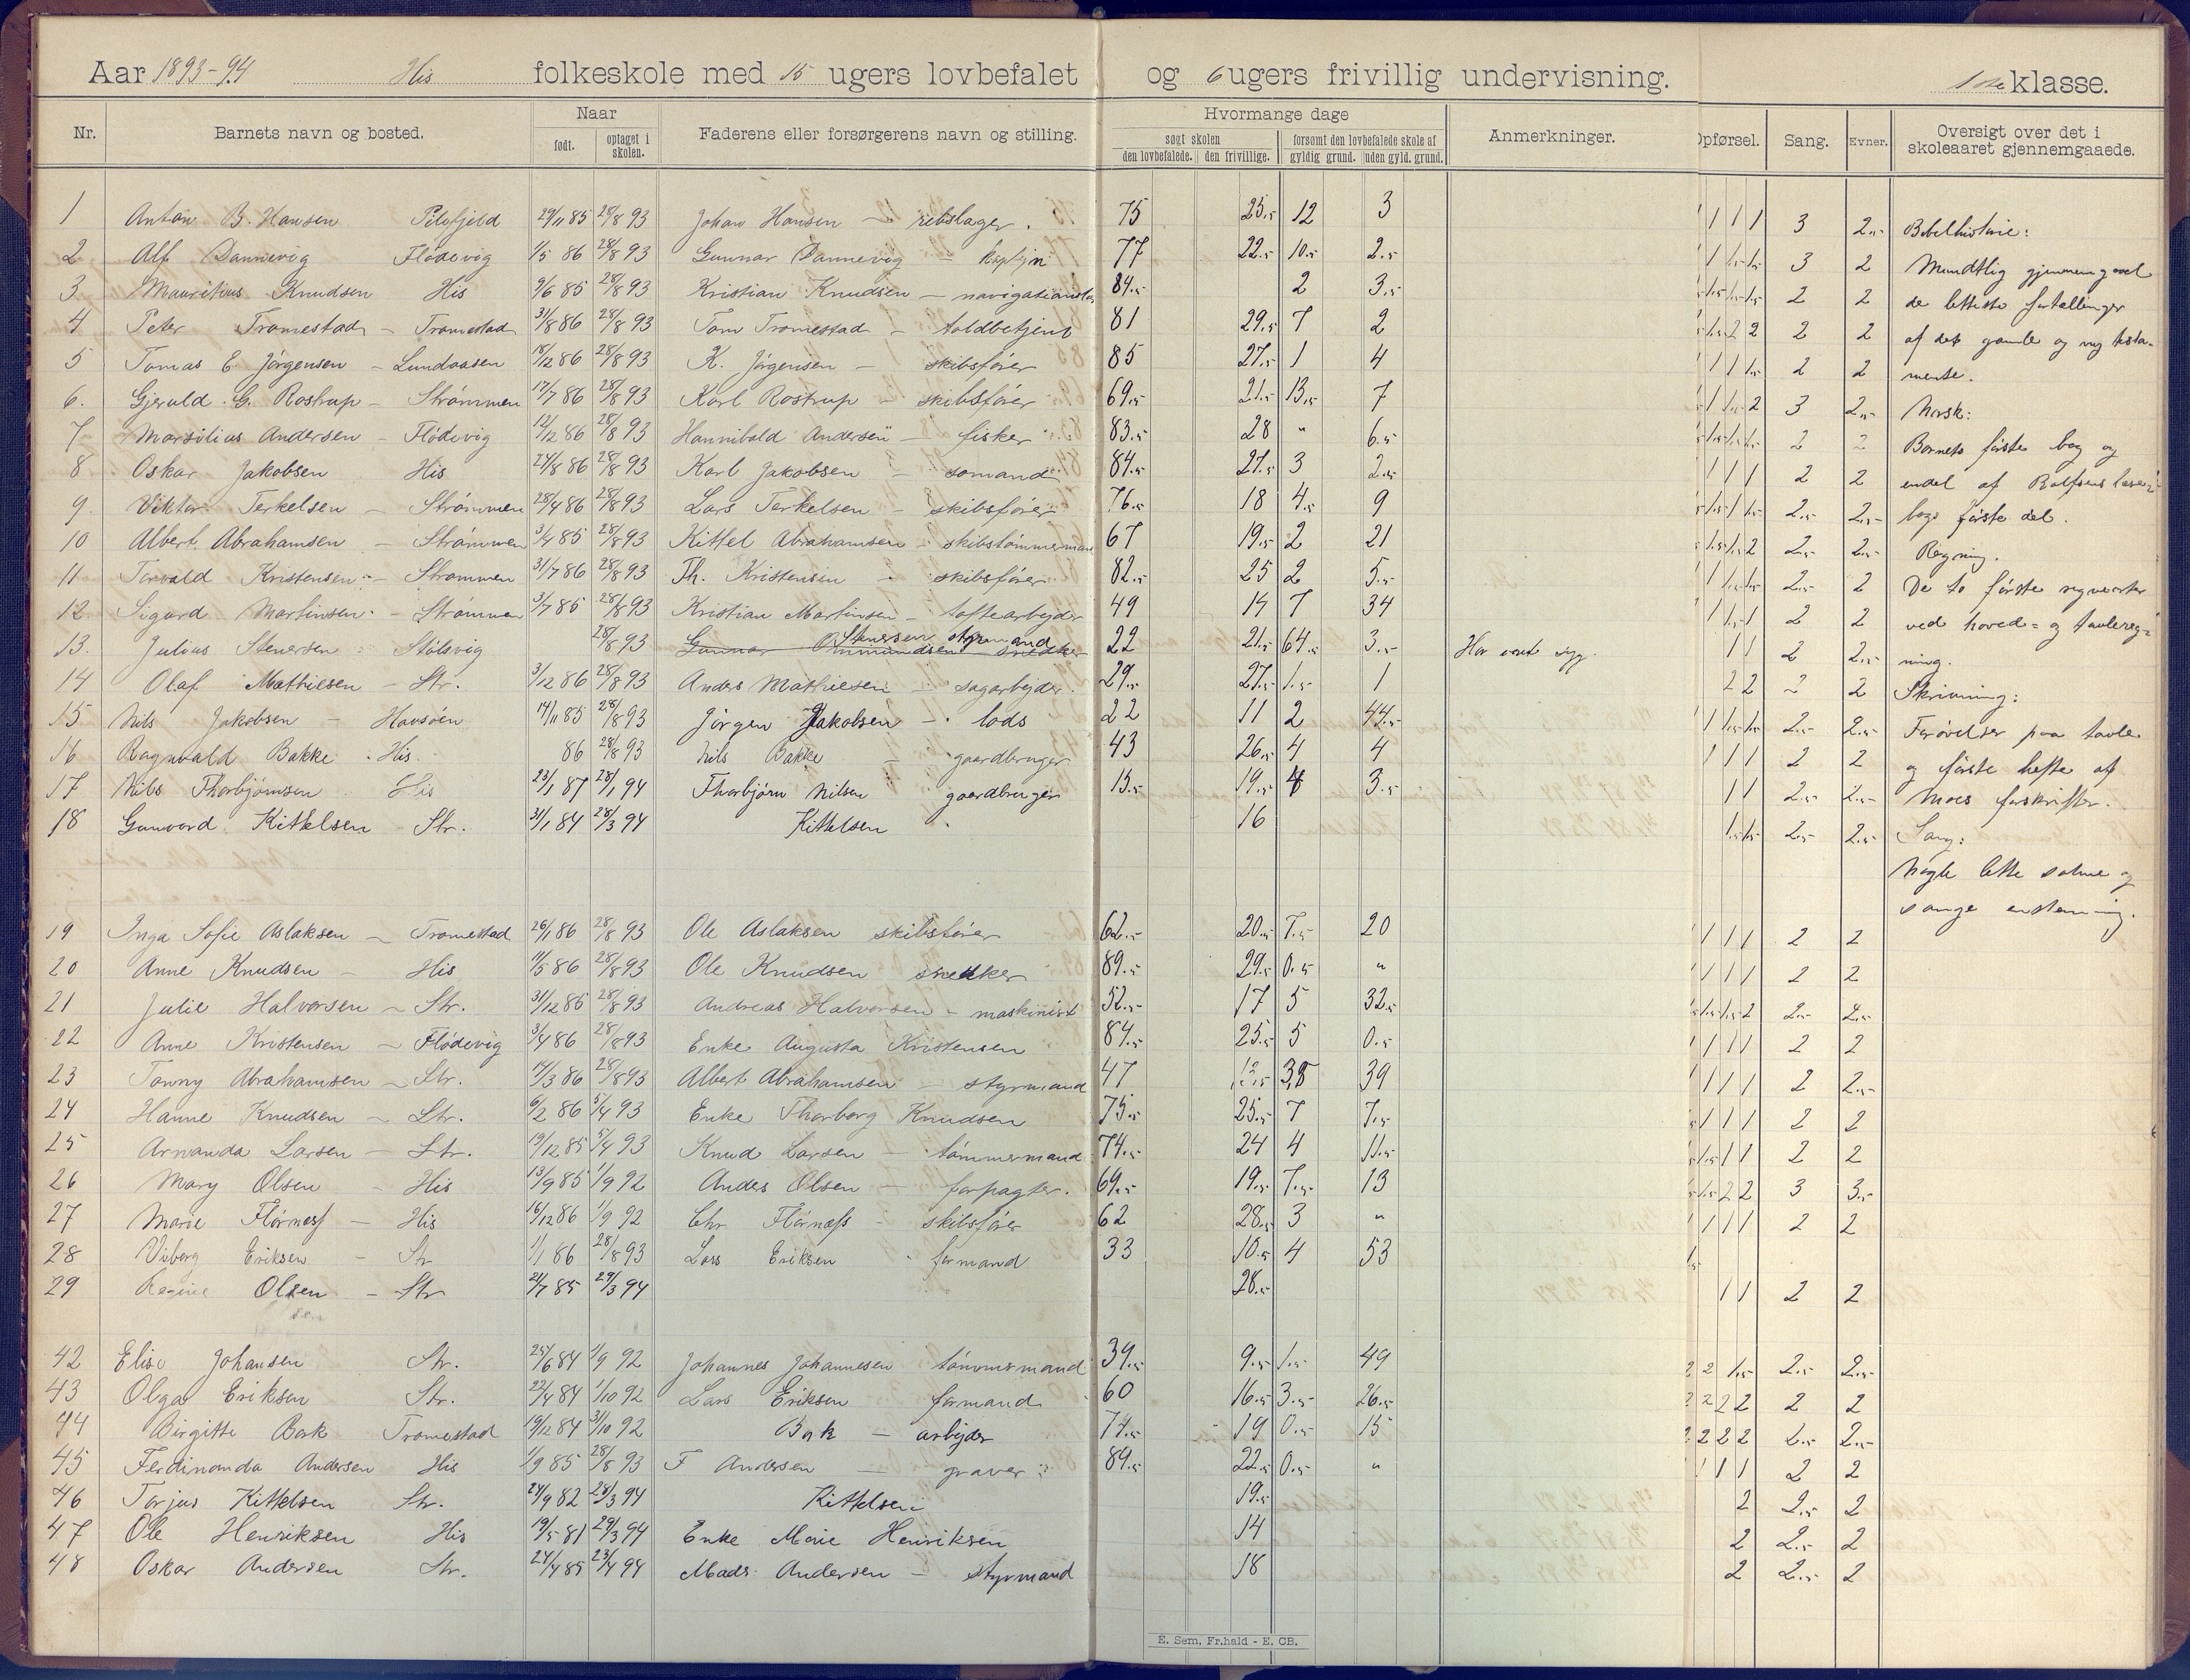 Aar 1893-94 His folkeskole med 15 ugers lovbefalet og 6 ugers frivillig undervisning. 1ste klasse.
Nr. Barnets navn og bosted. Naar født. optaget i skolen. Faderens eller forsørgerens navn og stilling. Hvormange dage søgt skolen den lovbefalede. den frivillige. forsømt den lovbefalede skole af gyldig grund. uden gyld. grund. Anmerkninger. Opførsel. Sang. Evner. Oversigt over det i skoleaaret gjennemgaaede.
1 Anton B. Hansen 29/11 85 28/8 93 Johan Hansen - rebslager. 75 25.5 12 3 1 1 1 3 2.5 Bibelhistorie:
2 Alf Dannevig Flödevig 1/5 86 28/8 93 Gunnar Dannevig - kaptjn 77 22.5 10.5 2.5 1 1.5 1.5 3 2 Mundtlig gjennemgaaet
3 Mauritius Knudsen His 9/6 85 28/8 93 Kristian Knudsen - 84.5 2 3.5 1.5 1.5 1.5 2 2 de letteste fortællinger
4 Peter Tromestad - Tromestad 31/8 86 28/8 93 Tom Tromestad - toldbetjent 81 29.5 7 2 1.5 2 2 2 2 af det gamle og ny testa-
5 Tomas E. Jörgensen - Lundaasen 18/12 86 28/8 93 K. Jörgensen - skibsförer 85 27.5 1 4 1 1 1.5 2 2 mente.
6. Gjerald G. Rostrup - Strömmen 17/7 86 28/8 93 Karl Rostrup - skibsförer 69.5 21.5 13.5 7 1 1.5 2 3 2.5 Norsk:
7 Marsilius Andersen - Flödevig 12/12 86 28/8 93 Hannibald Andersen - fisker 83.5 28 " 6.5 2 2 Barnets første bog og
8 Oskar Jakobsen His 24/8 86 28/8 93 Karl Jakobsen - somand 84.5 27.5 3 2.5 1 1 1 2 2 endel af Rolfsens læse-
9. Viktor Terkelsen - Strömmen 28/4 86 28/8 93 Lars Terkelsen - skibsförer 76.5 18 4.5 9 2.5 2.5 bogs første del.
10 Albert Abrahamsen - Strömmen 3/4 85 28/8 93 Kittel Abrahamsen - skibstömmermand 67 19.5 2 21 1.5 1.5 2 2.5 2.5 Regning.
11 Torvald Kristensen - Strommen 31/7 86 28/8 93 Th. Kristensen - skibsförer 82.5 25 2 5.5 1 1.5 1.5 2.5 2 De to første regnearter
12 Sigurd Martinsen - Strömmen 3/7 85 28/8 93 Kristian Martinsen - toftearbejder 49 14 7 34 1 1.5 1 2 2 ved hoved- og tavlereg-
13. Julius Stenersen - Stölsvig 28/8 93 Gunnar Ommundsen snedker Stenersen styrmand 22 21.5 64.5 3.5 Har været syg. 1 1 2 2.5 ning.
14 Olaf Mathiesen - Str. 3/12 86 28/8 93 Anders Mathiesen - sagarbejder. 29.5 27.5 1.5 1 2 2 2 2 Skrivning:
15 Nils Jakobsen - Havsöen 14/11 85 28/8 93 Jörgen Jakobsen - lods 22 11 2 44.5 1 1.5 1.5 2.5 2.5 Forøvelser paa tavle
16 Ragnvald Bakke - His 86 28/8 93 Nils Bakke - gaardbruger 43 26.5 4 4 1 1 1 2 2 og første hefte af
17 Nils Thorbjörnsen His 23/1 87 28/1 94 Thorbjörn Nilsen gaardbruger 15.5 19.5 4 3.5 1 1 2.5 2.5 Moes forskrifter.
18 Gunvord Kittelsen Str. 31/1 84 28/3 94 Kittelsen 16 1.5 1.5 2.5 2.5 Sang:
Nogle lette salme og
sange enstemmig.
19 Inga Sofie Aslaksen - Tromestad 26/1 86 28/8 93 Ole Aslaksen skibsförer 62.5 20.5 7.5 20 1 1 1 2 2
20 Anne Knudsen - His 11/5 86 28/8 93 Ole Knudsen snedker 89.5 29.5 0.5 " 1 1 1 2 2
21 Julie Halvorsen - Str. 31/12 85 28/8 93 Andreas Halvorsen - maskinist 52.5 17 5 32.5 1.5 1.5 2 2.5 2.5
22 Anne Kristensen - Flödevig 3/4 86 28/8 93 Enke Augusta Kristensen 84.5 25.5 5 0.5 1 1 1 2 2
23 Tonny Abrahamsen - Str. 14/3 86 28/8 93 Albert Abrahamsen - styrmand 47 39 1 1 1 2 2.5
24 Hanne Knudsen - Str. 6/2 86 5/4 93 Enke Thorborg Knudsen 75.5 25.5 7 7.5 1 1 1 2 2
25 Amanda Larsen - Str. 19/12 85 5/4 93 Knud Larsen - tömmermand 74.5 24 4 11.5 1.5 1 1 2 2
26 Mary Olsen - His 13/9 85 1/9 92 Anders Olsen - forpagter. 69.5 19.5 7.5 13 1.5 2 2 3 3.5
27 Marie Flörnæss - His 16/12 86 1/9 92 Chr Flörnæss - skibsförer 62 28.5 3 " 1 1 1 2 2
28 Viborg Eriksen - Str 1/1 86 28/8 93 Lars Eriksen - formand 33 10.5 4 53
29 Regine Olsen - Str 24/7 85 29/3 94 28.5 1 1 2 2
42 Elise Johansen Str. 25/6 84 1/9 92 Johannes Johannesen tömmermand 39.5 9.5 1.5 49 2 2 1.5 2.5 2.5
43 Olga Eriksen Str. 22/4 84 1/10 92 Lars Eriksen formand 60 16.5 3.5 26.5 2 2 2 2 2 2
44 Birgitte Bork Tromestad 19/12 84 31/10 92 Bork - arbejder 74.5 19 0.5 15 2 2 2 2 2.5 2.5
45 Ferdinanda Andersen His 1/9 85 28/8 93 F Andersen - graver 89.5 22.5 0.5 " 1 1 1 2 2
46 Torjus Kittelsen Str. 24/9 82 28/3 94 Kittelsen 19.5 2 2.5 2
47 Ole Henriksen His 19/5 81 29/3 94 Enke Marie Henriksen 14 2 2.5 2
48 Oskar Andersen Str. 24/4 85 23/4 94 Mads Andersen - styrmand 18 2 2.5 2
E. Sem, Fr.hald - E. CB.